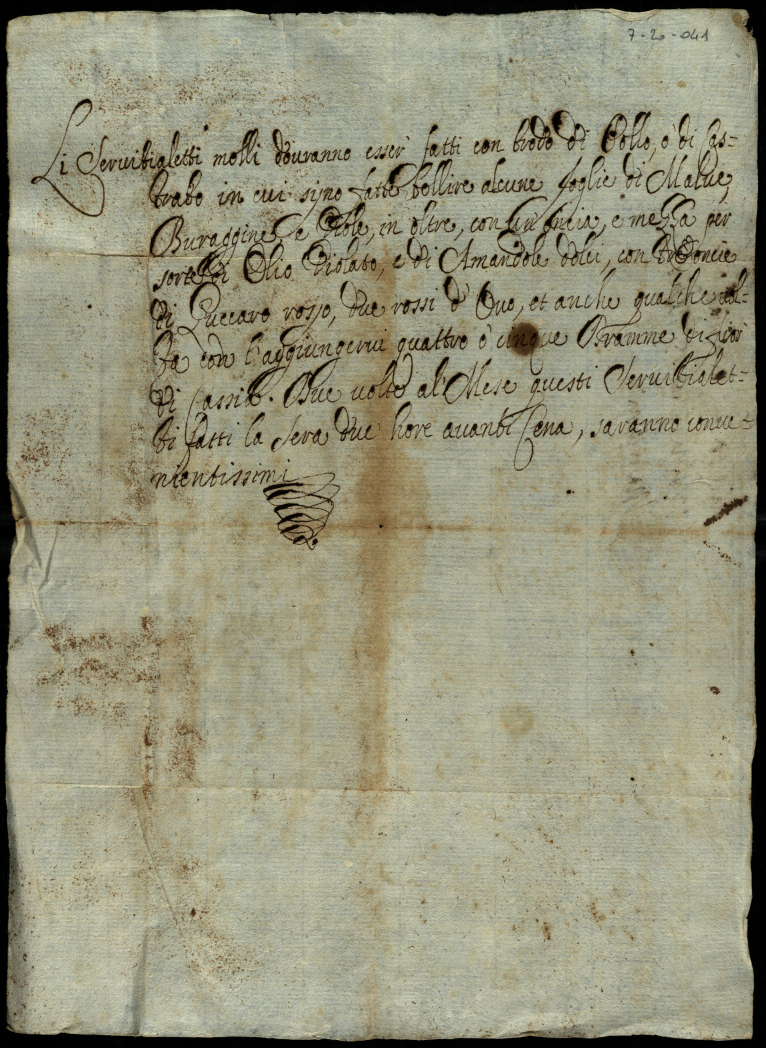 7-20-041
Li Servitialetti molli dovranno esser fatti con brodo di Pollo, o di Cas=
trato in cui sijno fatte bollire alcune foglie di Malve,
Buraggine, e Viole, in oltre, con un'oncia, e mezza per
sorte di Olio Violato, e di Amandole dolci, con tre Oncie
di Zuccaro rosso, due rossi d'Ovo, et anche qualche vol=
ta con l'aggiungervi quattro ò cinque Dramme di fior
di Cassia. Due volte al Mese questi Servitialet=
ti fatti la Sera due hore avanti Cena, saranno conve=
nientissimi